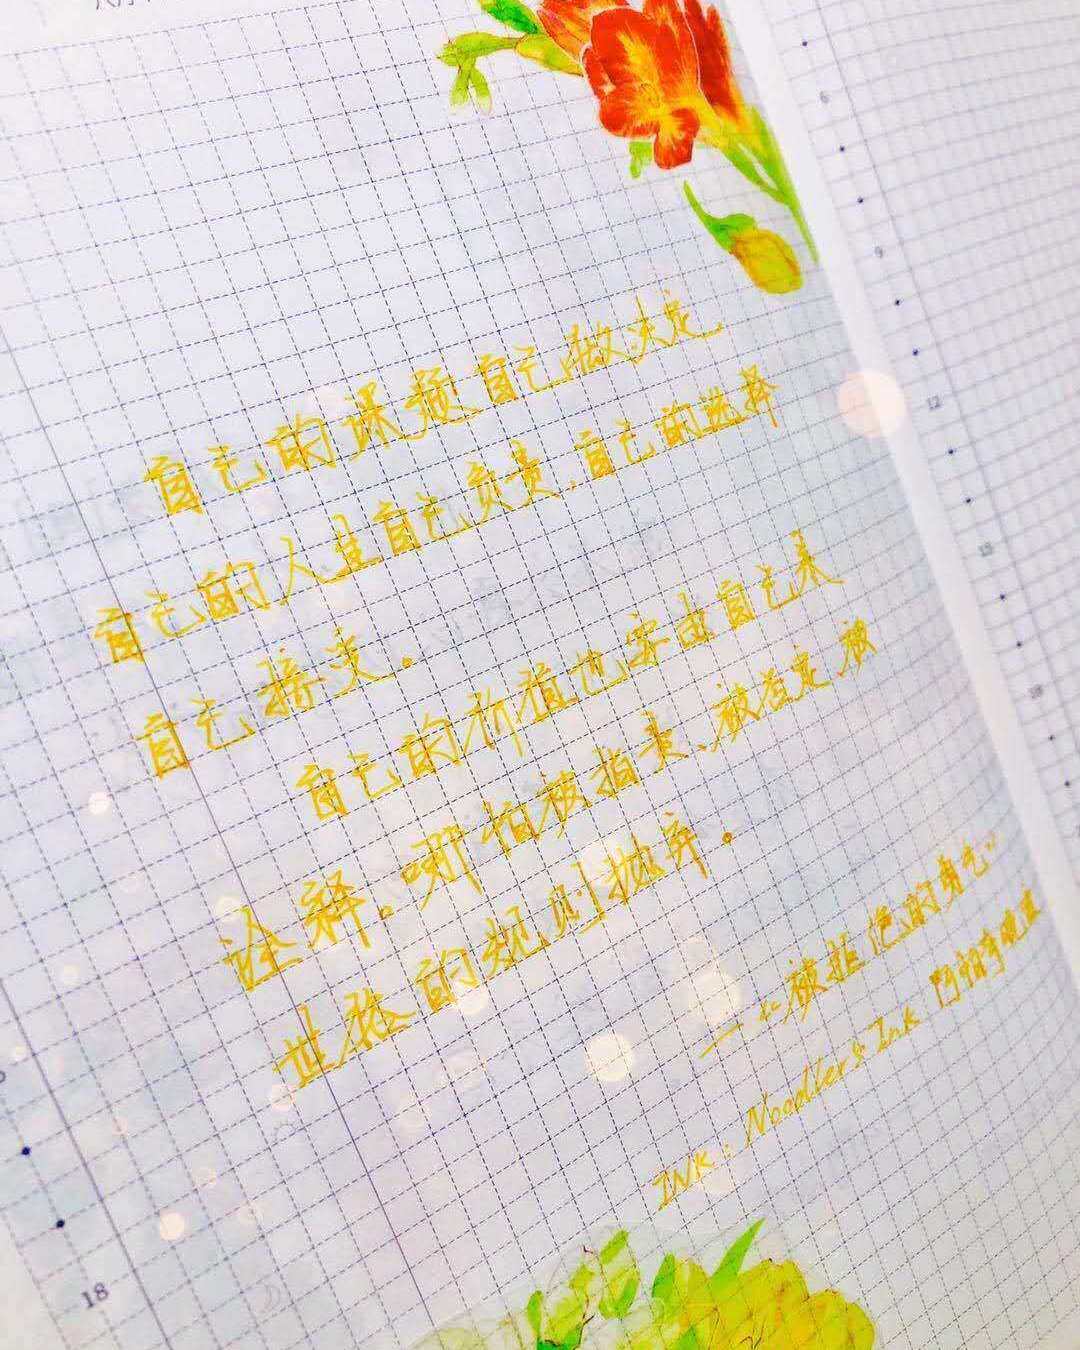 自己的课题自己做决定
自己的人生自己负责,自己的选择
自己接受。
自己的价值也要由自己来
诠释。哪怕被指责、被否定、被
世俗的规则抛弃。
—“被拒绝的勇气”
INK: Noodler's Ink 阿帕奇晚霞
18
9
12